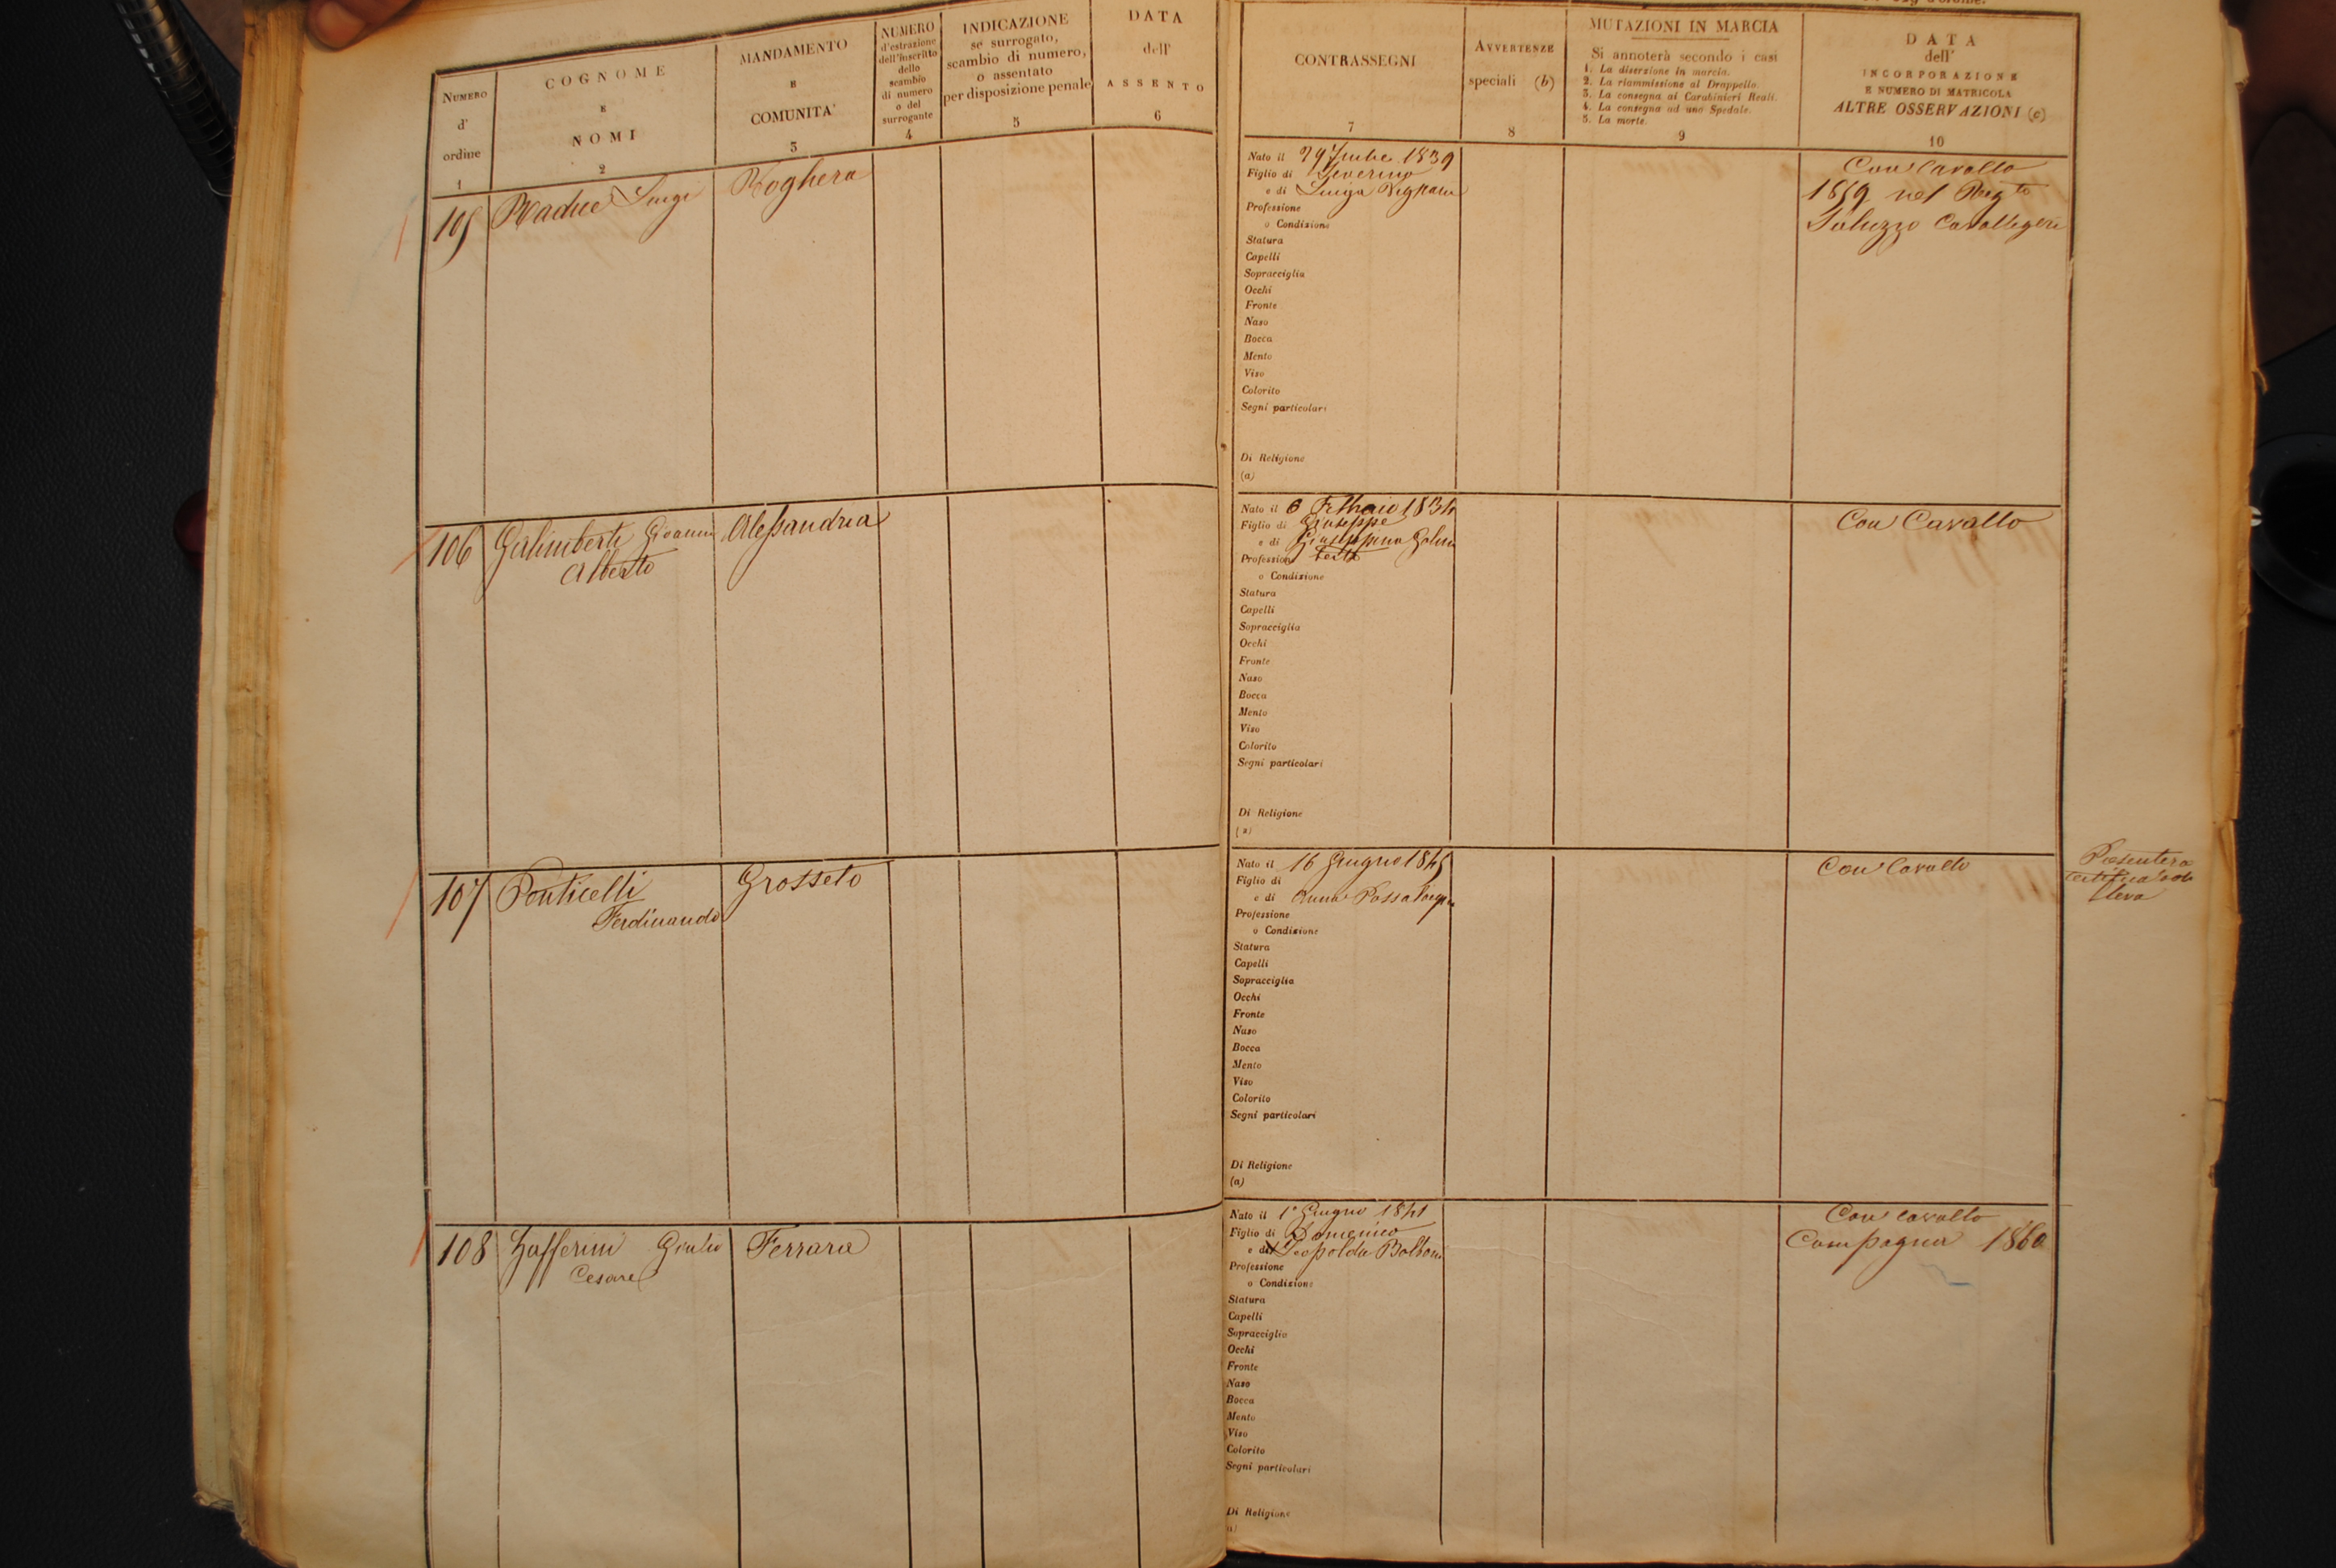 NUMERO
d'
ordine
1
COGNOME
E
NOMI
2
MANDAMENTO
E
COMUNITA'
3
NUMERO
d'estrazione
dell'inscritto
dello
scambio
di numero
o del
surrogante
4
INDICAZIONE
se surrogato,
scambio di numero,
o assentato
per disposizione penale
5
DATA
dell'
ASSENTO
6
CONTRASSEGNI
7
AVVERTENZE
speciali (b)
8
MUTAZIONI IN MARCIA
Si annoterà secondo i casi
1. La diserzione in marcia.
2. La riammissione al Drappello.
3. La consegna ai Carabinieri Reali.
4. La consegna ad uno Spedale.
5. La morte.
9
DATA
dell'
INCORPORAZIONE
E NUMERO DI MATRICOLA
ALTRE OSSERVAZIONI (c)
10
105 Luigi Voghera
Nato il 1839
Figlio di Severino
e di Luigia
Professione
o Condizione
Statura
Capelli
Sopracciglia
Occhi
Fronte
Naso
Bocca
Mento
Viso
Colorito
Segni particolari
Di Religione
(a)
Con Cavallo
1859 nel Regto
Saluzzo Cavalleggeri
106 Galimberti Giovanni Alessandria
Alberto
Nato il 6 Febbraio 183
Figlio di Giuseppe
e di Giuseppina
Professione
o Condizione
Statura
Capelli
Sopracciglia
Occhi
Fronte
Naso
Bocca
Mento
Viso
Colorito
Segni particolari
Di Religione
(a)
Con Cavallo
107 Ponticelli Grosseto
Ferdinando
Nato il 16 Giugno 1845
Figlio di
e di Anna
Professione
o Condizione
Statura
Capelli
Sopracciglia
Occhi
Fronte
Naso
Bocca
Mento
Viso
Colorito
Segni particolari
Di Religione
(a)
Con Cavallo
Presenterà
leva
108 Zafferini Giulio Ferrara
Cesare
Nato il 1° Giugno 1841
Figlio di Domenico
e di Leopolda Bolboni
Professione
o Condizione
Statura
Capelli
Sopracciglia
Occhi
Fronte
Naso
Bocca
Mento
Viso
Colorito
Segni particolari
Di Religione
Con cavallo
Campagna 1860